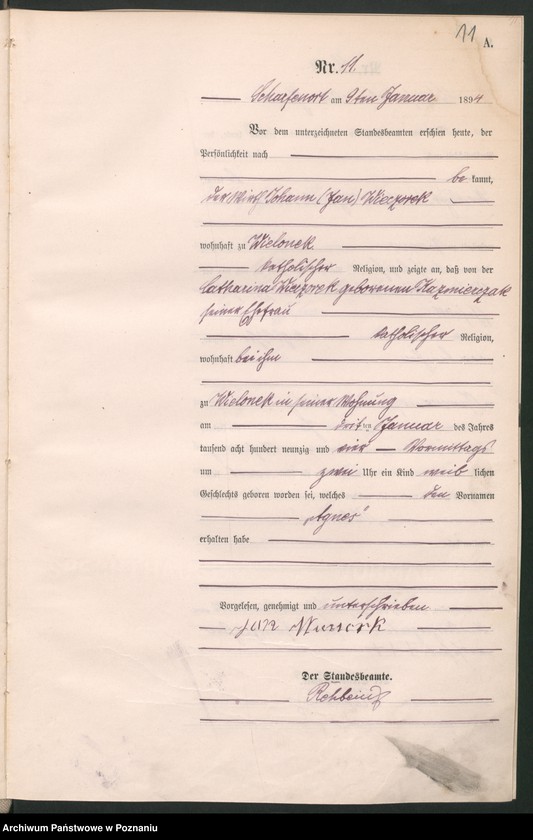 11
A.
Nr. 11.
Scharfenort am 9ten Januar 1894
Vor dem unterzeichneten Standesbeamten erschien heute, der
Persönlichkeit nach
be kannt,
der Wirth Johann (Jan) Wieczorek
wohnhaft zu Wielonek
katholischer Religion, und zeigte an, daß von der
Catharina Wieczorek geborenen Kazmierczak
seiner Ehefrau
katholischer Religion,
wohnhaft bei ihm
zu Wielonek in seiner Wohnung
am dritten Januar des Jahres
tausend acht hundert neunzig und vier Vormittags
um zwei Uhr ein Kind weib lichen
Geschlechts geboren worden sei, welches den Vornamen
„Agnes"
erhalten habe
Vorgelesen, genehmigt und unterschrieben
Jan
Der Standesbeamte.
Archiwum Państwowe w Poznaniu